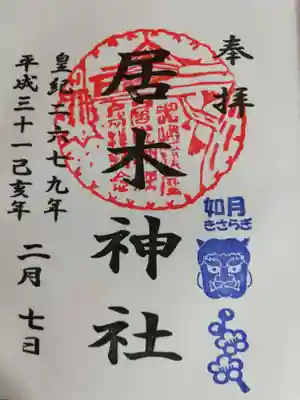 奉拝
如月
きさらぎ
居木神社
皇紀二六七九年
平成三十一己亥年
二月七日